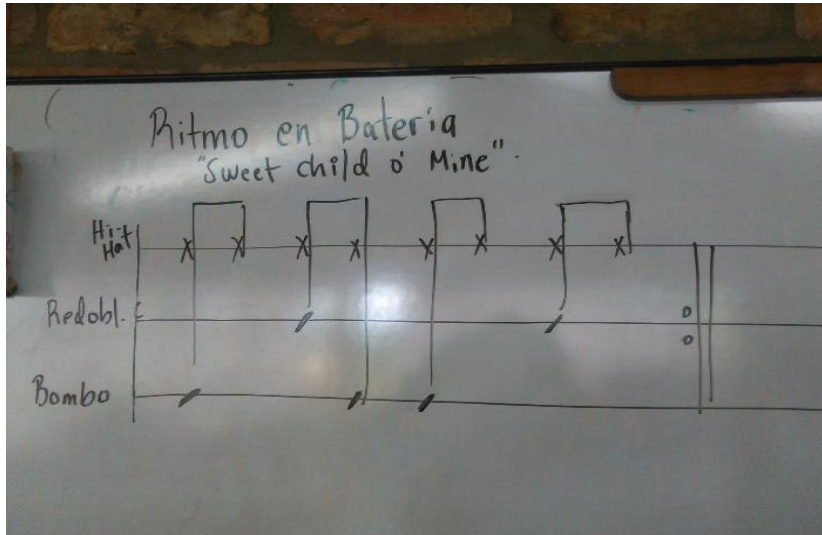 Ritmo en Bateria
"Sweet child o' Mine".
Hi-t
Hat
Redobl.
Bombo